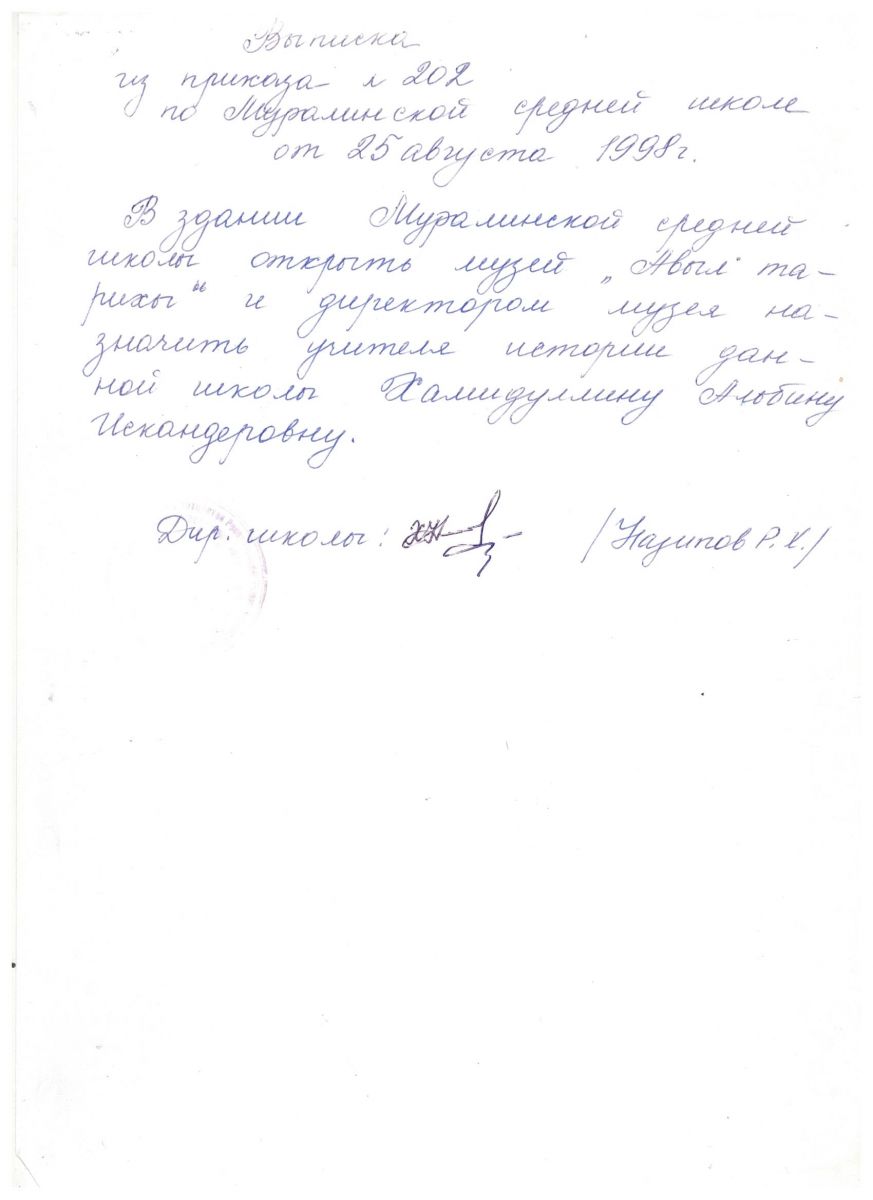 Выписка
из приказа № 202
по Муралинской средней школе
от 25 августа 1998 г.
В здании Муралинской средней
школы открыть музей „Авыл та-
рихы“ и директором музея на-
значить учителя истории дан-
ной школы Хамидуллину Альбину
Искандеровну.
Дир. школы: /Назипов Р. Х./